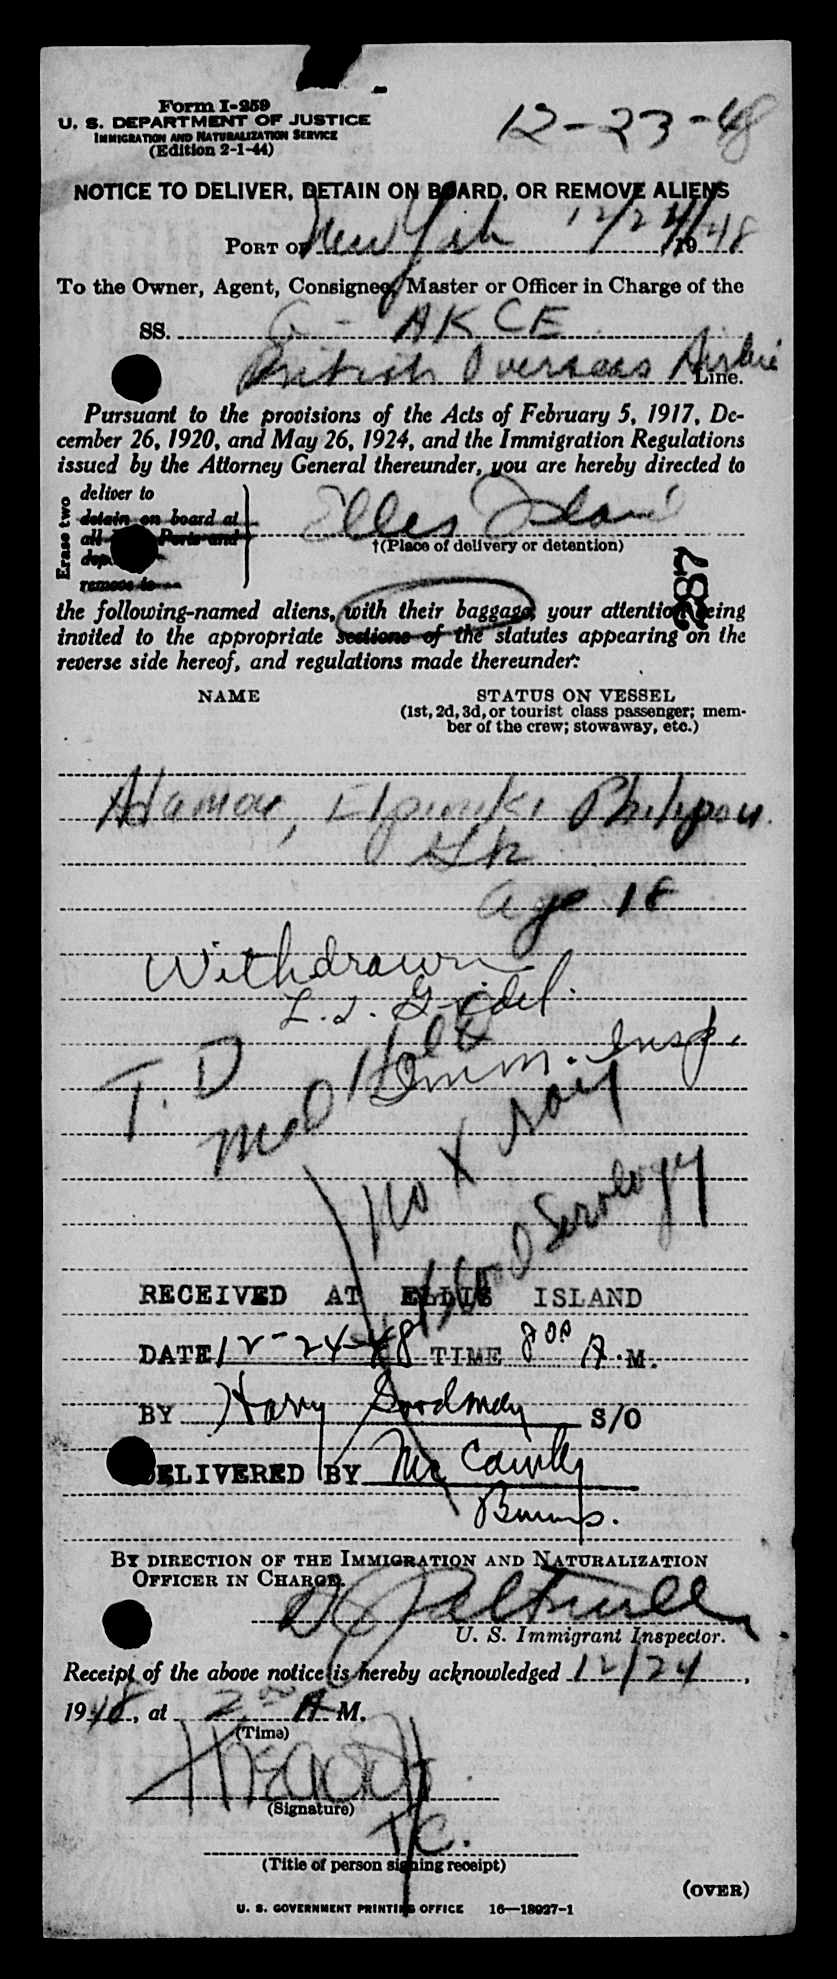 Form I-259
U. S. DEPARTMENT OF JUSTICE
IMMIGRATION AND NATURALIZATION SERVICE
(Edition 2-1-44)
12-23-48
NOTICE TO DELIVER, DETAIN ON BOARD, OR REMOVE ALIENS
PORT OF New York 12/24/1948
To the Owner, Agent, Consignee, Master or Officer in Charge of the
SS. G - AKCE
British Overseas Airline Line.
Pursuant to the provisions of the Acts of February 5, 1917, De-
cember 26, 1920, and May 26, 1924, and the Immigration Regulations
issued by the Attorney General thereunder, you are hereby directed to
Erase two
deliver to
detain on board at
all Ports and
remove to
Elles Island
†(Place of delivery or detention)
287
the following-named aliens, with their baggage, your attention being
invited to the appropriate sections of the statutes appearing on the
reverse side hereof, and regulations made thereunder:
NAME
STATUS ON VESSEL
(1st, 2d, 3d, or tourist class passenger; mem-
ber of the crew; stowaway, etc.)
Adamou, Elpiniki Philippou
age 18
Withdrawn
T. D
Imm. Insp.
Med Hold
No X Ray
Blood Serology
RECEIVED AT ELLIS ISLAND
DATE 12-24-48 TIME 8 00 A. M.
BY Harry Goodman S/O
DELIVERED BY
BY DIRECTION OF THE IMMIGRATION AND NATURALIZATION
OFFICER IN CHARGE.
U. S. Immigrant Inspector.
Receipt of the above notice is hereby acknowledged 12/24,
1948, at 2 00 A M.
(Time)
(Signature)
T.C.
(Title of person signing receipt)
(OVER)
U. S. GOVERNMENT PRINTING OFFICE 16—18027-1